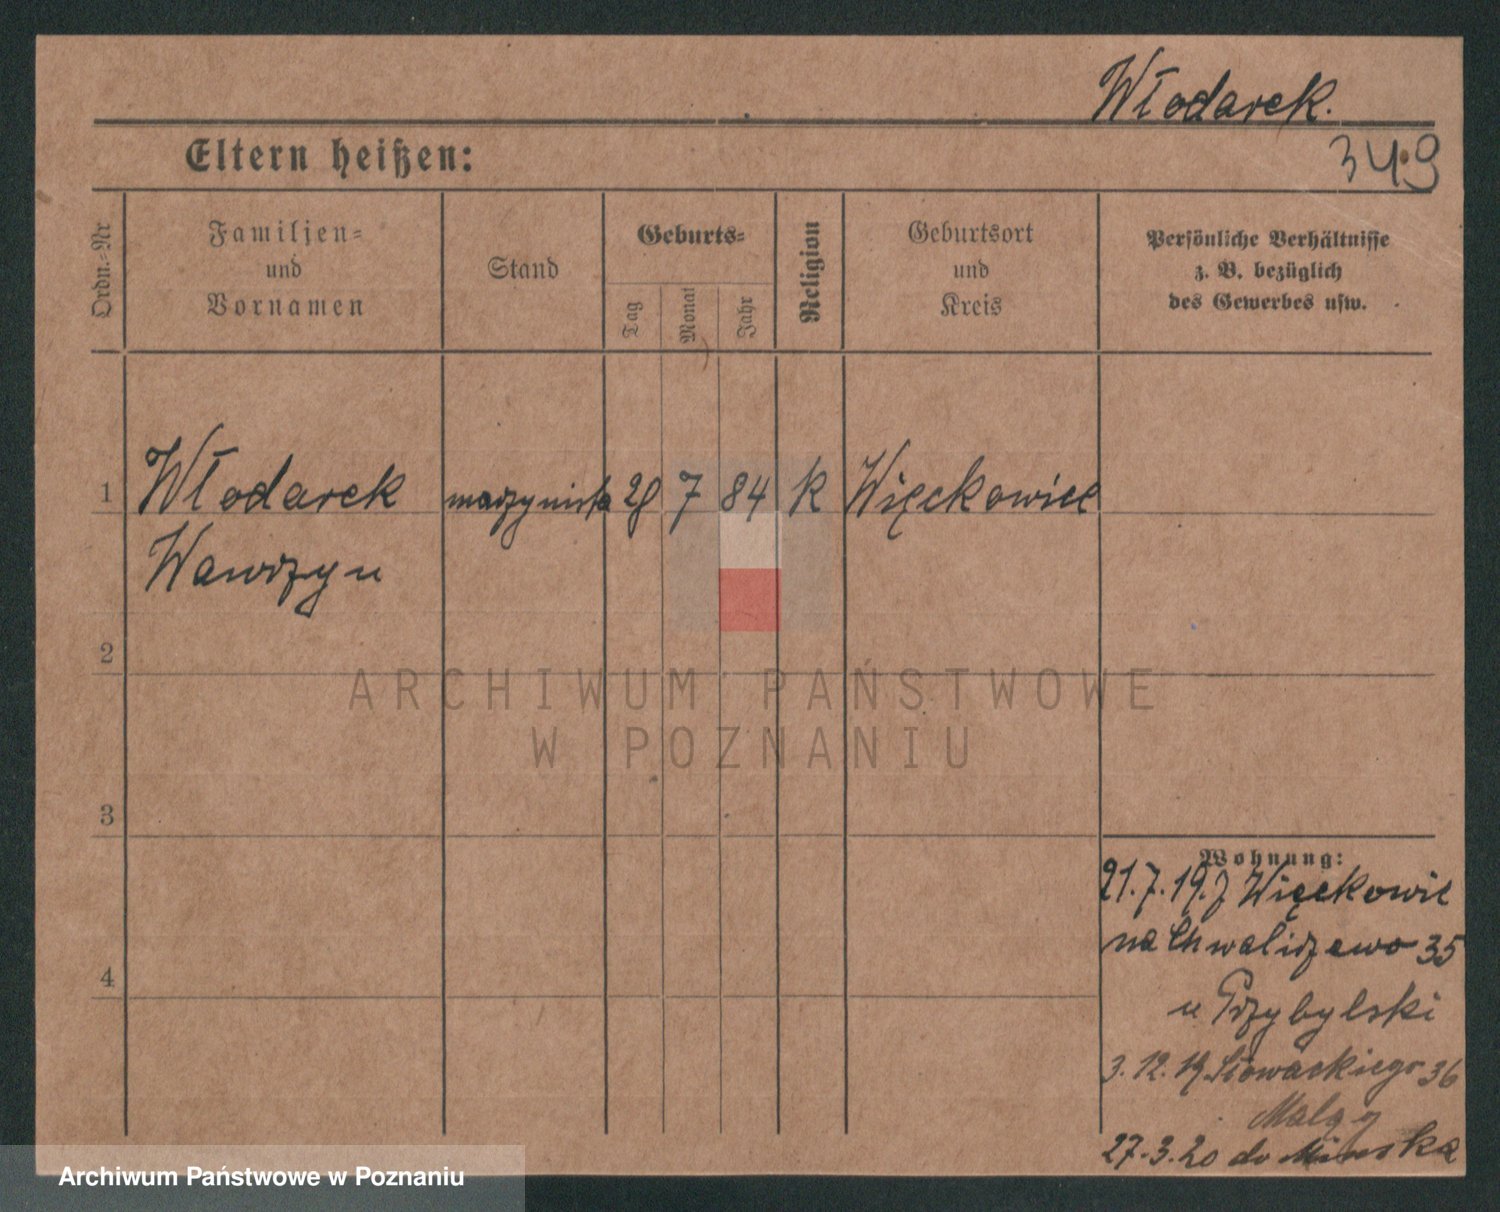 Włodarek.
Eltern heißen:
349
Ordn.-Nr
Familien-
und
Vornamen
Stand
Geburts-
Tag
Monat
Jahr
Religion
Geburtsort
und
Kreis
Persönliche Verhältnisse
z. B. bezüglich
des Gewerbes usw.
1 Włodarek maszynista 28 7 84 K Więckowice
Wawrzyn
2
ARCHIWUM PAŃSTWOWE
W POZNANIU
3
Wohnung:
21.7.19. z Więckowic
na Chwaliszewo 35
4
u Przybylski
3.12.19. Słowackiego 36
27.3.20 do Mińska
Archiwum Państwowe w Poznaniu